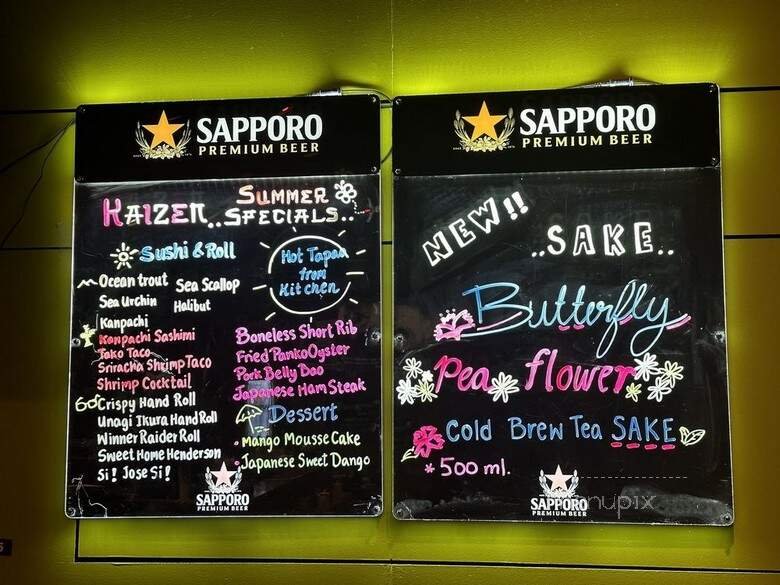 SAPPORO
PREMIUM BEER
KAIZEN..
SUMMER
SPECIALS..
Sushi & Roll
Ocean trout
Sea Scallop
Sea Urchin
Halibut
Kanpachi
Kanpachi Sashimi
Tako Taco
Sriracha Shrimp Taco
Shrimp Cocktail
Crispy Hand Roll
Unagi Ikura Hand Roll
Winner Raider Roll
Sweet Home Henderson
Si! Jose Si!
Hot Tapas
from
Kitchen
Boneless Short Rib
Fried Panko Oyster
Pork Belly Dao
Japanese Ham Steak
Dessert
• Mango Mousse Cake
• Japanese Sweet Dango
SAPPORO
PREMIUM BEER
SAPPORO
PREMIUM BEER
NEW!!
..SAKE..
Butterfly
Pea flower
Cold Brew Tea SAKE
* 500 ml.
SAPPORO
PREMIUM BEER